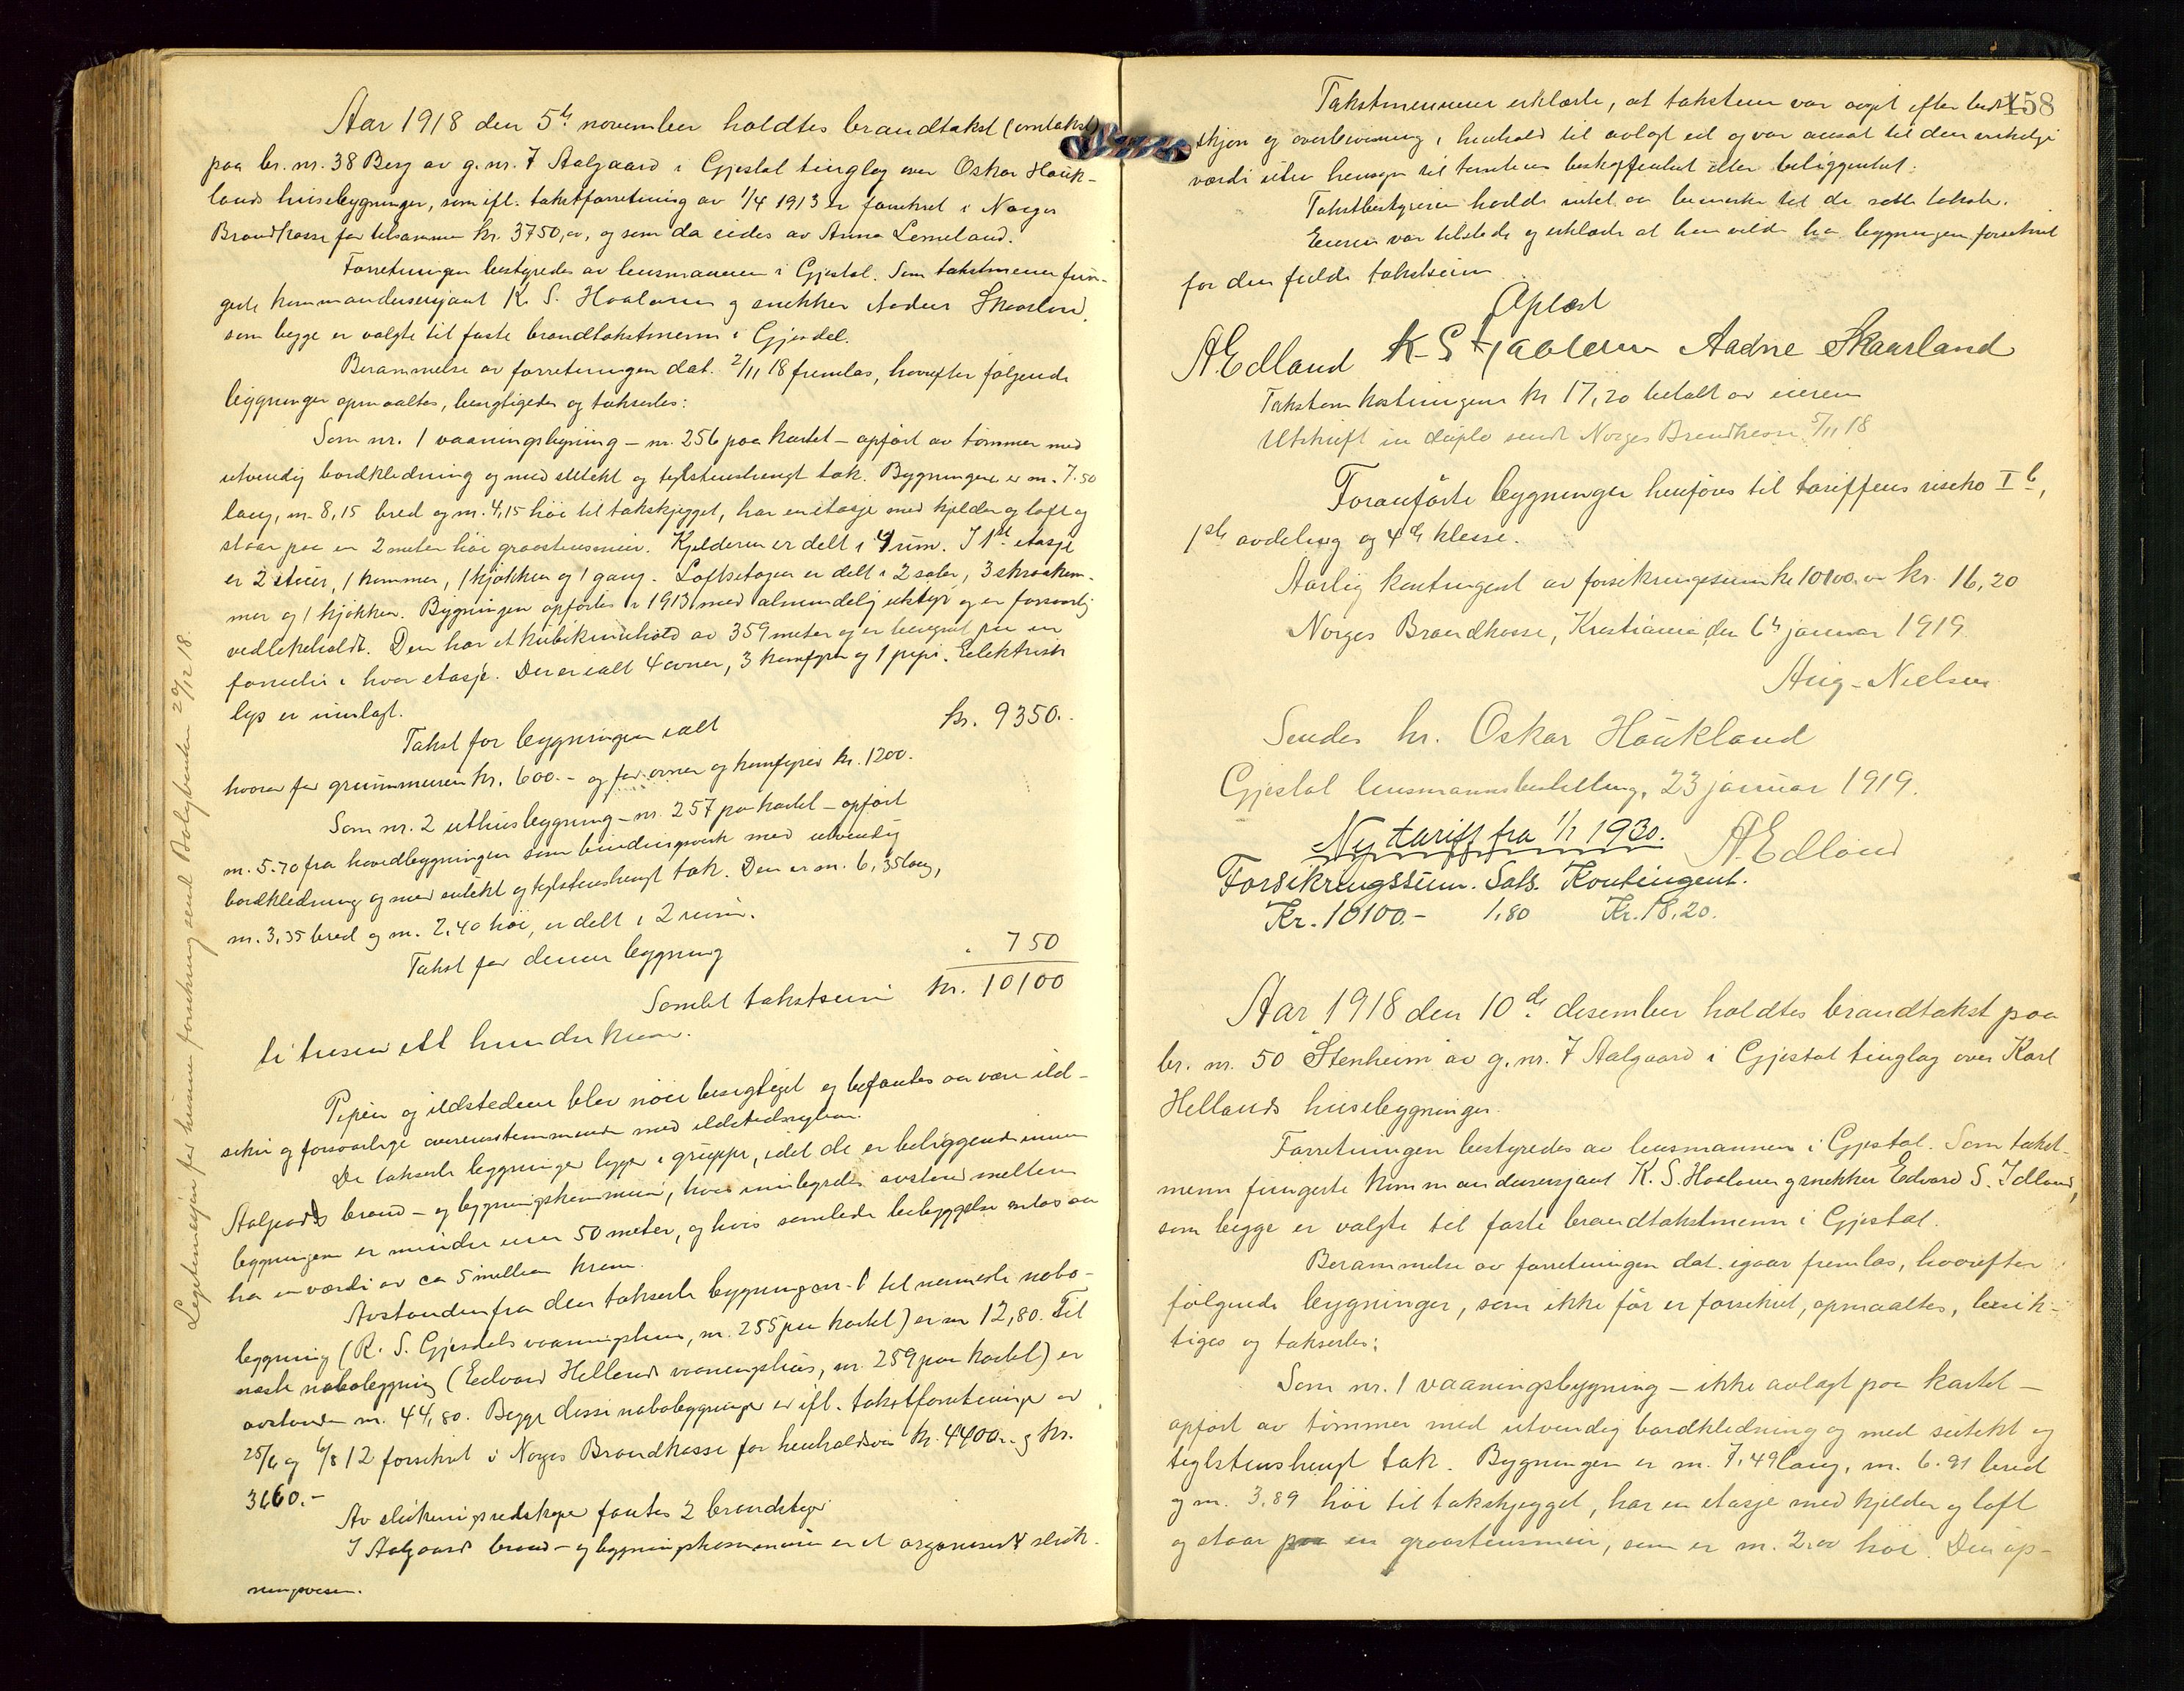 Aar 1918 den 5te november holdtes brandtakst (omtakst)
paa br. nr. 38 Berg av g. nr. 7 Aalgaard i Gjestal tinglag over Oskar Hauk-
lands husebygninger, som ifl. takstforretning av 1/4 1913 er forsikret i Norges
Brandkasse for tilsammen kr. 3750,00, og som da eiedes av Anna Lemeland.
Forretningen bestyredes av lensmannen i Gjestal. Som takstmenn fun-
gerte kommandersersjant K. S. Haaland og snekker Aadne Skaarland,
som begge er valgte til faste brandtakstmenn i Gjesdal.
Berammelse av forretningen dat. 2/11 18 fremlas, hvorefter følgende
bygninger opmaaltes, besigtigedes og takserdes:
Som nr. 1 vaaningsbygning – nr. 256 paa kartet – opført av tømmer med
utvendig bordkledning og med sutekt og teglstenshengt tak. Bygningen er m. 7.50
lang, m. 8,15 bred og m. 4,15 høi til takskjegget, har en etasje med kjelder og loft og
staar paa en 2 meter høi graastensmur. Kjelderen er delt i 4 rum. I 1ste etasje
er 2 stuer, 1 kammer, 1 kjøkken og 1 gang. Loftsetagen er delt i 2 saler, 3 skraakam-
mer og 1 kjøkken. Bygningen opførtes i 1913 med almindelig utstyr og er forsvarlig
vedlikeholdt. Den har et kubikinnhold av 359 meter og er beregnet paa en
familie i hver etasje. Der er ialt 4 ovner, 3 komfyrer og 1 pipe. Elektrisk
lys er innlagt.
Takst for bygningen ialt kr. 9350.-
hvorav for grunnmuren kr. 600.- og for ovner og komfyrer kr. 1200.
Som nr. 2 uthusbygning – nr. 257 paa kartet – opført
m. 5.70 fra hovedbygningen som bindingsverk med utvendig
bordkledning og med sutekt og teglstenshengt tak. Den er m. 6,35 lang,
m. 3,35 bred og m. 2,40 høi, er delt i 2 rum.
Takst for denne bygning " 750
Samlet takstsum kr. 10100
ti tusen ett hundre kroner.
Pipen og ildstedene blev nøie besigtiget og befantes aa være ild-
sikre og forsvarlige overensstemmende med ildstedsreglene.
De takserte bygninger ligger i gruppe, idet de er beliggende innen
Aalgaards brand- og bygningskommune, hvis innbyrdes avstand mellem
bygningene er mindre enn 50 meter, og hvis samlede bebyggelse antas aa
ha en værdi av ca 5 million kroner.
Avstanden fra den takserte bygning nr. 1 til nærmeste nabo-
bygning (R. S. Gjesdals vaaningshus, nr. 255 paa kartet) er m 12,80. Til
næste nabobygning (Edvard Hellands vaaningshus, nr. 259 paa kartet) er
avstanden m. 44,80. Begge disse nabobygninger er ifl. takstforretninger av
25/6 og 6/8 12 forsikret i Norges Brandkasse for henholdsvis kr. 4400.- og kr.
3660.-
Av slukningsredskaper fantes 2 brandstiger
I Aalgaards brand- og bygningskommune er et organisert sluk-
ningsvesen.
Legitimasjon for husenes forsikring sendt Boligbanken 20/12 18.
158
Takstmennene erklærte, at taksten var avgit efter bedste
skjøn og overbevisning i henhold til avlagt ed og var ansat til den virkelige
værdi uten hensyn til tomtens beskaffenhet eller beliggenhet.
Takstbestyreren hadde intet aa bemerke til de satte takster.
Eieren var tilstede og erklærte at han vilde ha bygningen forsikret
for den fulde takstsum
Oplæst
AEdland K. S. Haaland Aadne Skaarland
Takstomkostningene kr 17,20 betalt av eieren
Utskrift in duplo sendt Norges Brandkasse 5/11 18
Foranførte bygninger henføres til tariffens risiko I b,
1ste avdeling og 4de klasse.
Aarlig kontingent av forsikringssum kr 10100,00 kr. 16,20
Norges Brandkasse, Kristiania, den 6te januar 1919
Aug. Nielsen
Sendes hr. Oskar Haukland
Gjestal lensmannsbestilling, 23 januar 1919.
AEdland
Ny tariff fra 1/1 1930.
Forsikringssum. Sats. Kontingent.
Kr. 10100.- 1,80 Kr. 18,20.
Aar 1918 den 10de desember holdtes brandtakst paa
br. nr. 50 Stenheim av g. nr. 7 Aalgaard i Gjestal tinglag over Karl
Hellands husebygninger.
Forretningen bestyredes av lensmannen i Gjestal. Som takst-
menn fungerte kommandersersjant K. S. Haaland og snekker Edvard S. Idland,
som begge er valgte til faste brandtakstmenn i Gjestal.
Berammelse av forretningen dat. igaar fremlas, hvorefter
følgende bygninger, som ikke før er forsikret, opmaaltes, besik-
tiges og takserdes:
Som nr. 1 vaaningsbygning – ikke avlagt paa kartet –
opført av tømmer med utvendig bordkledning og med sutekt og
teglstenshengt tak. Bygningen er m. 7,49 lang, m. 6.91 bred
og m. 3,89 høi til takskjegget, har en etasje med kjelder og loft
og staar paa en graastensmur, som er m. 2,00 høi. Den op-